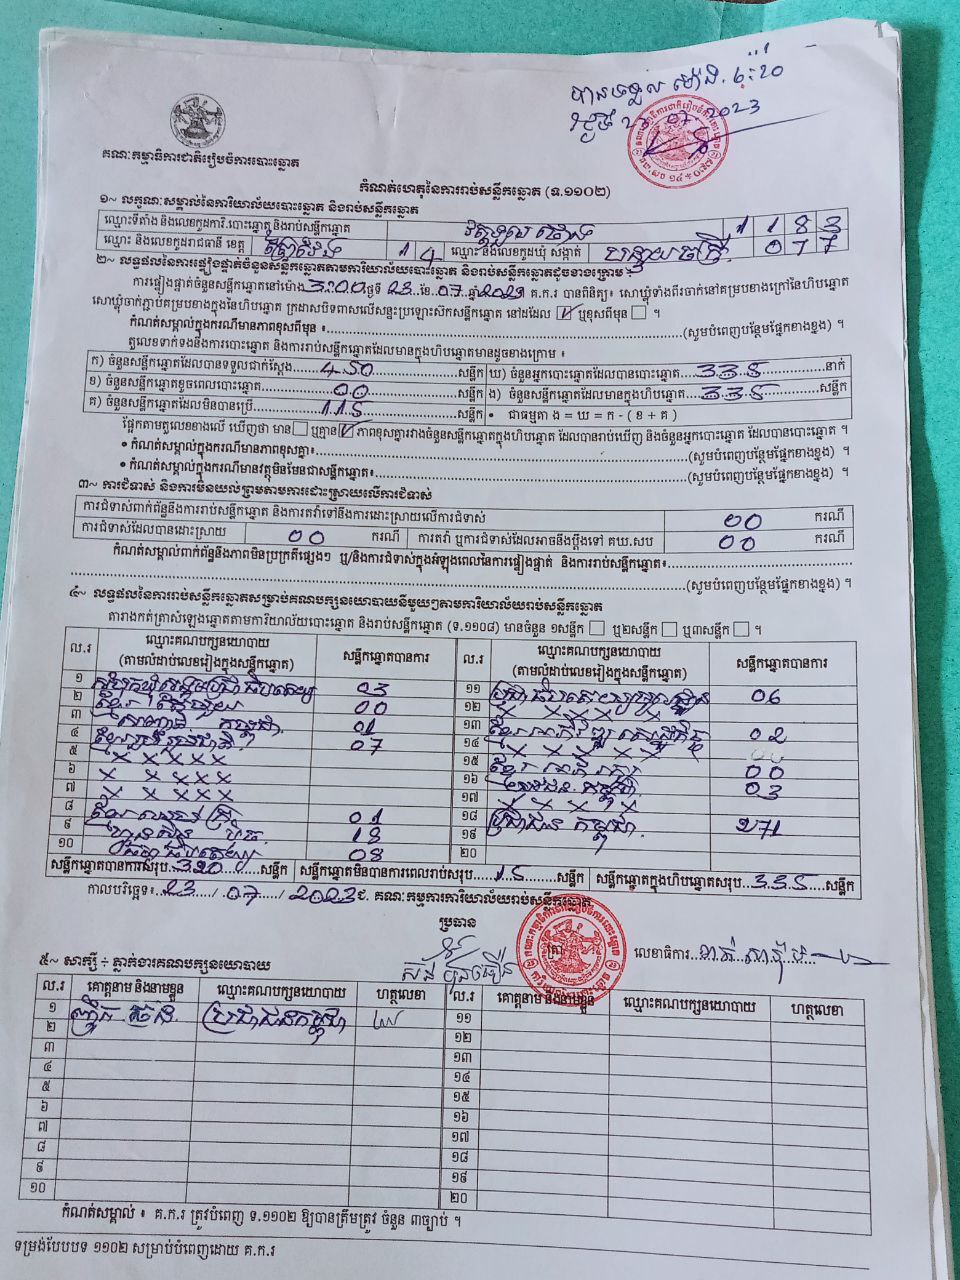 បានទទួល ម៉ោង ៦:២០
ថ្ងៃទី 23 07 2023
គណៈកម្មាធិការជាតិរៀបចំការបោះឆ្នោត
កំណត់ហេតុនៃការរាប់សន្លឹកឆ្នោត (ទ.១១០២)
១~ លក្ខណៈសម្គាល់នៃការិយាល័យបោះឆ្នោត និងរាប់សន្លឹកឆ្នោត
ឈ្មោះទីតាំង និងលេខកូដការិ.បោះឆ្នោត និងរាប់សន្លឹកឆ្នោត 1 1 8 3
ឈ្មោះ និងលេខកូដរាជធានី ខេត្ត ព្រៃវែង 1 4 ឈ្មោះ និងលេខកូដឃុំ សង្កាត់ 0 7 7
២~ លទ្ធផលនៃការផ្ទៀងផ្ទាត់ចំនួនសន្លឹកឆ្នោតតាមការិយាល័យបោះឆ្នោត និងរាប់សន្លឹកឆ្នោតដូចខាងក្រោម ៖
ការផ្ទៀងផ្ទាត់ចំនួនសន្លឹកឆ្នោតនៅម៉ោង 3:00 ថ្ងៃទី 23 ខែ 07 ឆ្នាំ 2023 គ.ក.រ បានពិនិត្យ៖ សោឃ្លុំទាំងពីរចាក់នៅគម្របខាងក្រៅនៃហិបឆ្នោត
សោឃ្លុំចាក់ភ្ជាប់គម្របខាងក្នុងនៃហិបឆ្នោត ក្រដាសបិទពាសលើសន្ទះប្រឡោះស៊កសន្លឹកឆ្នោត នៅដដែល ☑ ឬខុសពីមុន ☐ ។
កំណត់សម្គាល់ក្នុងករណីមានភាពខុសពីមុន ៖ (សូមបំពេញបន្ថែមផ្នែកខាងខ្នង) ។
តួលេខទាក់ទងនឹងការបោះឆ្នោត និងការរាប់សន្លឹកឆ្នោតដែលមានក្នុងហិបឆ្នោតមានដូចខាងក្រោម ៖
ក) ចំនួនសន្លឹកឆ្នោតដែលបានទទួលជាក់ស្តែង 450 សន្លឹក ឃ) ចំនួនអ្នកបោះឆ្នោតដែលបានបោះឆ្នោត 335 នាក់
ខ) ចំនួនសន្លឹកឆ្នោតខូចពេលបោះឆ្នោត 00 សន្លឹក ង) ចំនួនសន្លឹកឆ្នោតដែលមានក្នុងហិបឆ្នោត 335 សន្លឹក
គ) ចំនួនសន្លឹកឆ្នោតដែលមិនបានប្រើ 115 សន្លឹក • ជាធម្មតា ង = ឃ = ក - ( ខ + គ )
ផ្អែកតាមតួលេខខាងលើ ឃើញថា មាន ☐ ឬគ្មាន ☑ ភាពខុសគ្នារវាងចំនួនសន្លឹកឆ្នោតក្នុងហិបឆ្នោត ដែលបានរាប់ឃើញ និងចំនួនអ្នកបោះឆ្នោត ដែលបានបោះឆ្នោត ។
• កំណត់សម្គាល់ក្នុងករណីមានភាពខុសគ្នា៖ (សូមបំពេញបន្ថែមផ្នែកខាងខ្នង) ។
• កំណត់សម្គាល់ក្នុងករណីមានវត្ថុមិនមែនជាសន្លឹកឆ្នោត៖ (សូមបំពេញបន្ថែមផ្នែកខាងខ្នង) ។
៣~ ការជំទាស់ និងការមិនយល់ព្រមតាមការដោះស្រាយលើការជំទាស់
ការជំទាស់ពាក់ព័ន្ធនឹងការរាប់សន្លឹកឆ្នោត និងការតវ៉ាទៅនឹងការដោះស្រាយលើការជំទាស់ 00 ករណី
ការជំទាស់ដែលបានដោះស្រាយ 00 ករណី ការតវ៉ា ឬការជំទាស់ដែលអាចនឹងប្តឹងទៅ គឃ.សប 00 ករណី
កំណត់សម្គាល់ពាក់ព័ន្ធនឹងភាពមិនប្រក្រតីផ្សេងៗ ឬ/និងការជំទាស់ក្នុងអំឡុងពេលនៃការផ្ទៀងផ្ទាត់ និងការរាប់សន្លឹកឆ្នោត៖
(សូមបំពេញបន្ថែមផ្នែកខាងខ្នង) ។
៤~ លទ្ធផលនៃការរាប់សន្លឹកឆ្នោតសម្រាប់គណបក្សនយោបាយនីមួយៗតាមការិយាល័យរាប់សន្លឹកឆ្នោត
តារាងកត់ត្រាសំឡេងឆ្នោតតាមការិយាល័យបោះឆ្នោត និងរាប់សន្លឹកឆ្នោត (ទ.១១០៨) មានចំនួន ១សន្លឹក ☐ ឬ២សន្លឹក ☐ ឬ៣សន្លឹក ☐ ។
ល.រ ឈ្មោះគណបក្សនយោបាយ (តាមលំដាប់លេខរៀងក្នុងសន្លឹកឆ្នោត) សន្លឹកឆ្នោតបានការ ល.រ ឈ្មោះគណបក្សនយោបាយ (តាមលំដាប់លេខរៀងក្នុងសន្លឹកឆ្នោត) សន្លឹកឆ្នោតបានការ
១ សំបុកឃ្មុំសង្គមប្រជាធិបតេយ្យ 03 ១១ 06
២ 00 ១២ X X X X X
៣ កម្ពុជា 01 ១៣ ខ្មែរអភិវឌ្ឍសេដ្ឋកិច្ច 02
៤ ខ្មែររួបរួមជាតិ 07 ១៤ X X X X X
៥ X X X X X ១៥ 00
៦ X X X X X ១៦ 03
៧ X X X X X ១៧ X X X X X
៨ 01 ១៨ ប្រជាជនកម្ពុជា 271
៩ ហ្វ៊ុនស៊ិនប៉ិច 18 ១៩
១០ 08 ២០
សន្លឹកឆ្នោតបានការសរុប 320 សន្លឹក សន្លឹកឆ្នោតមិនបានការពេលរាប់សរុប 15 សន្លឹក សន្លឹកឆ្នោតក្នុងហិបឆ្នោតសរុប 335 សន្លឹក
កាលបរិច្ឆេទ៖ 23 / 07 / 2023 ជ. គណៈកម្មការការិយាល័យរាប់សន្លឹកឆ្នោត
ប្រធាន
ត្រា
លេខាធិការ
៥~ សាក្សី ÷ ភ្នាក់ងារគណបក្សនយោបាយ
ល.រ គោត្តនាម និងនាមខ្លួន ឈ្មោះគណបក្សនយោបាយ ហត្ថលេខា ល.រ គោត្តនាម និងនាមខ្លួន ឈ្មោះគណបក្សនយោបាយ ហត្ថលេខា
១ ប្រជាជនកម្ពុជា ១១
២ ១២
៣ ១៣
៤ ១៤
៥ ១៥
៦ ១៦
៧ ១៧
៨ ១៨
៩ ១៩
១០ ២០
កំណត់សម្គាល់ ៖ គ.ក.រ ត្រូវបំពេញ ទ.១១០២ ឱ្យបានត្រឹមត្រូវ ចំនួន ៣ច្បាប់ ។
ទម្រង់បែបបទ ១១០២ សម្រាប់បំពេញដោយ គ.ក.រ